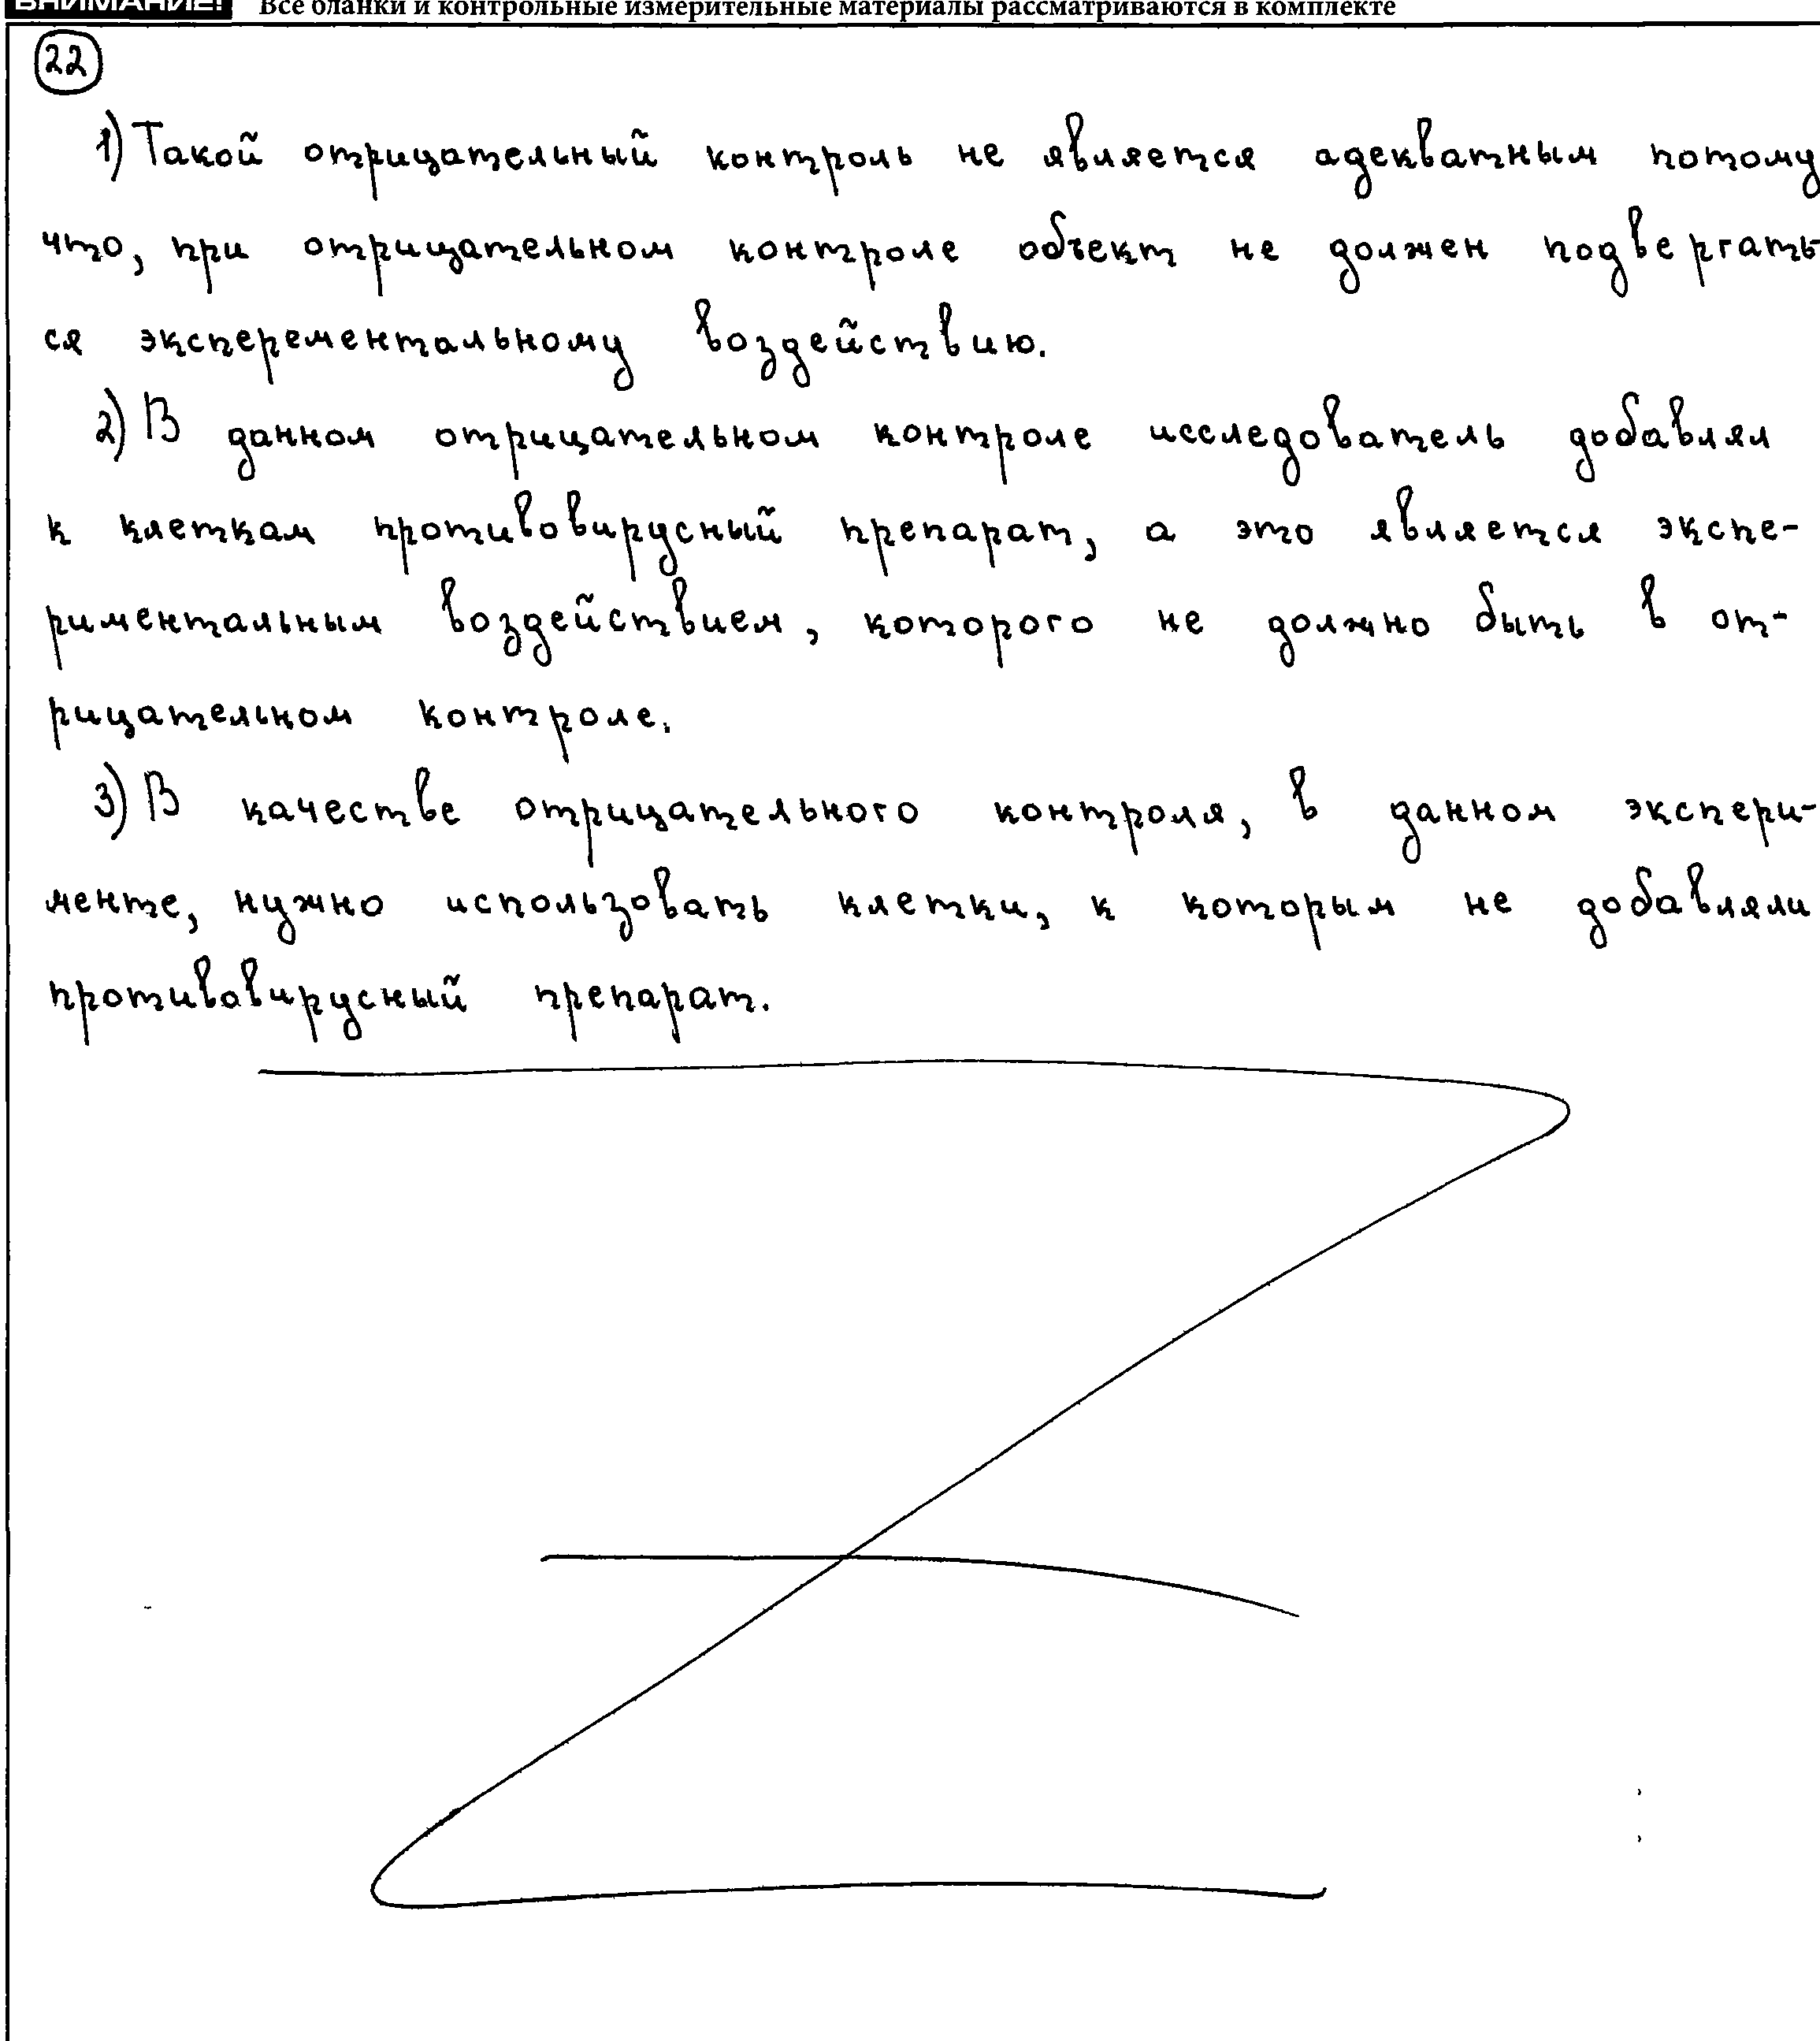 ВНИМАНИЕ! Все бланки и контрольные измерительные материалы рассматриваются в комплекте
22
1) Такой отрицательный контроль не является адекватным потому
что, при отрицательном контроле объект не должен подвергать
ся эксперементальному воздействию.
2) В данном отрицательном контроле исследователь добавлял
к клеткам противовирусный препарат, а это является экспе-
риментальным воздействием, которого не должно быть в от-
рицательном контроле.
3) В качестве отрицательного контроля, в данном экспери-
менте, нужно использовать клетки, к которым не добавляли
противовирусный препарат.